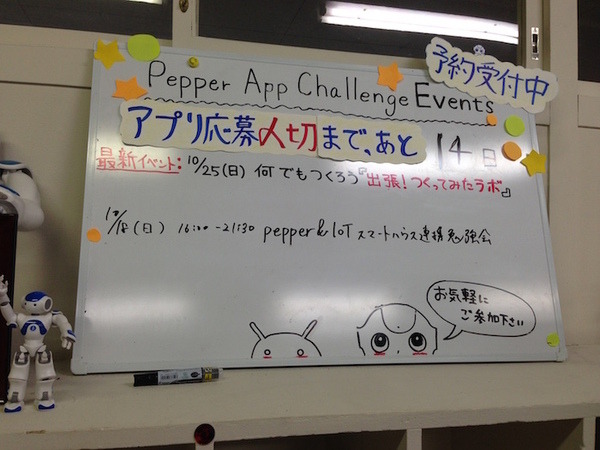 Pepper App Challenge Events
予約受付中
アプリ応募〆切まで、あと 14日
最新イベント: 10/25(日) 何でもつくろう『出張!つくってみたラボ』
10/18(日) 16:00-21:30 pepper & IoT スマートハウス連携勉強会
お気軽に
ご参加下さい